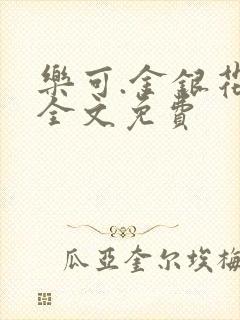 樂可.金銀花
全文免費
瓜亞奎尔埃梅